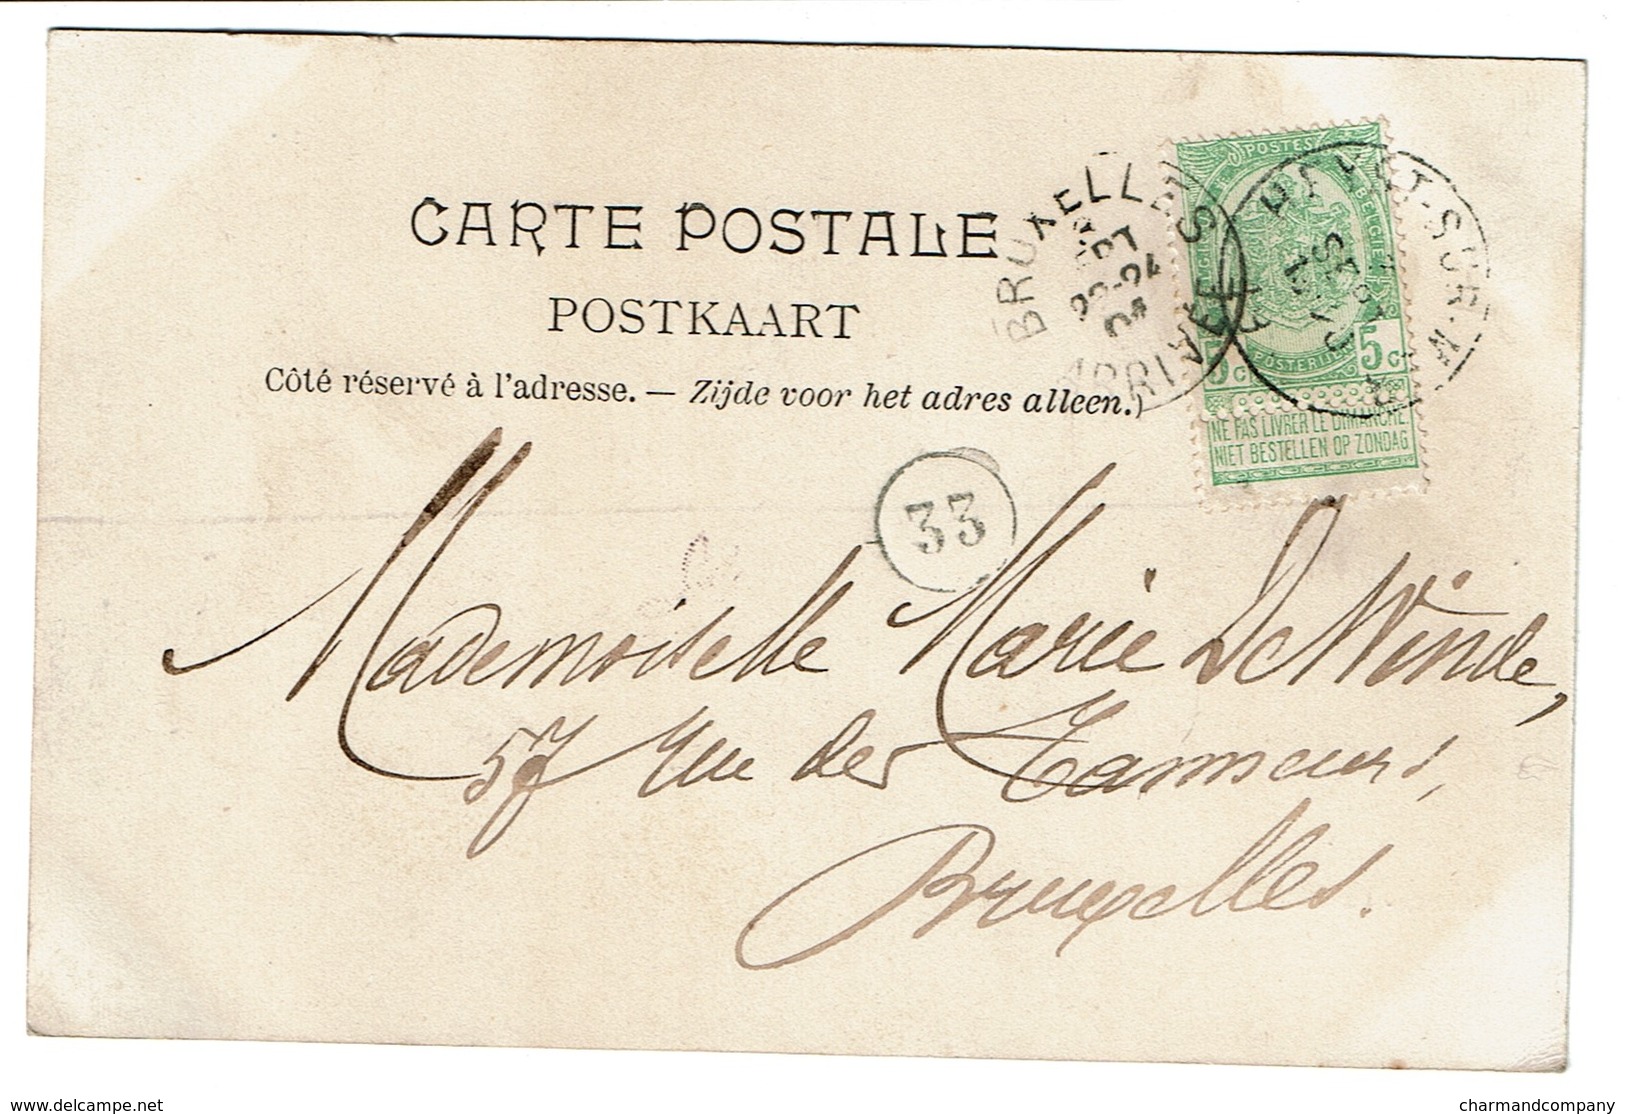 CARTE POSTALE
POSTKAART
Côté réservé à l'adresse. — Zijde voor het adres alleen.)
POSTES
BELGIQUE
BELGIE
POSTERIJEN
5 C 5 C
NE PAS LIVRER LE DIMANCHE
NIET BESTELLEN OP ZONDAG
BRUXELLES
ARRIVEE
33
Mademoiselle Marie De Winde,
57 rue des Tanneurs,
Bruxelles.
delcampe.net
charmandcompany